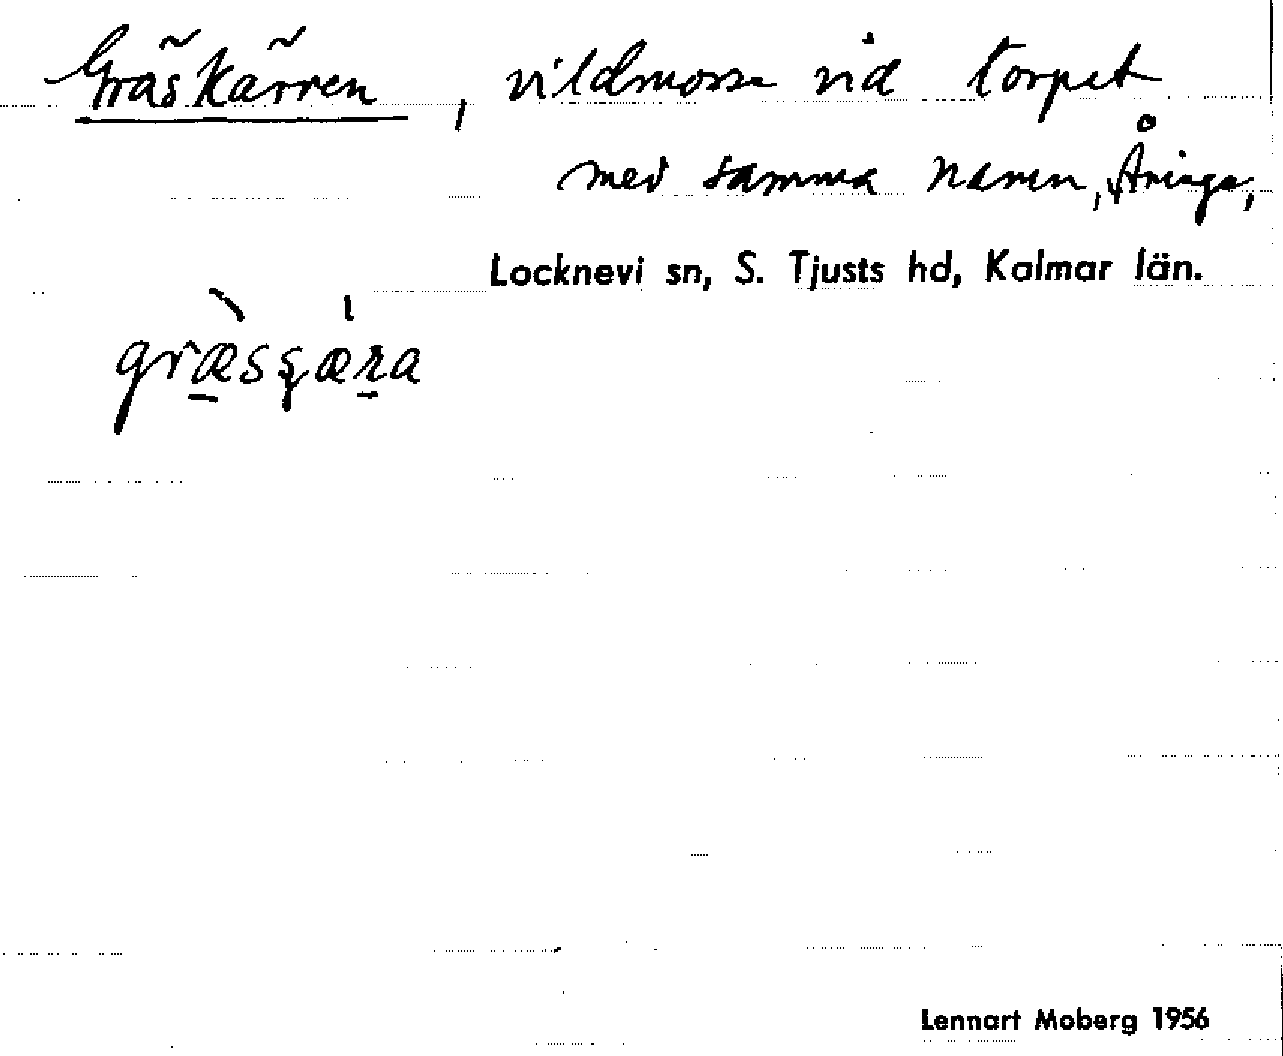 Gräskärren, vildmosse vid torpet
med samma namn, Åringe,
Locknevi sn, S. Tjusts hd, Kalmar län.
Lennart Moberg 1956